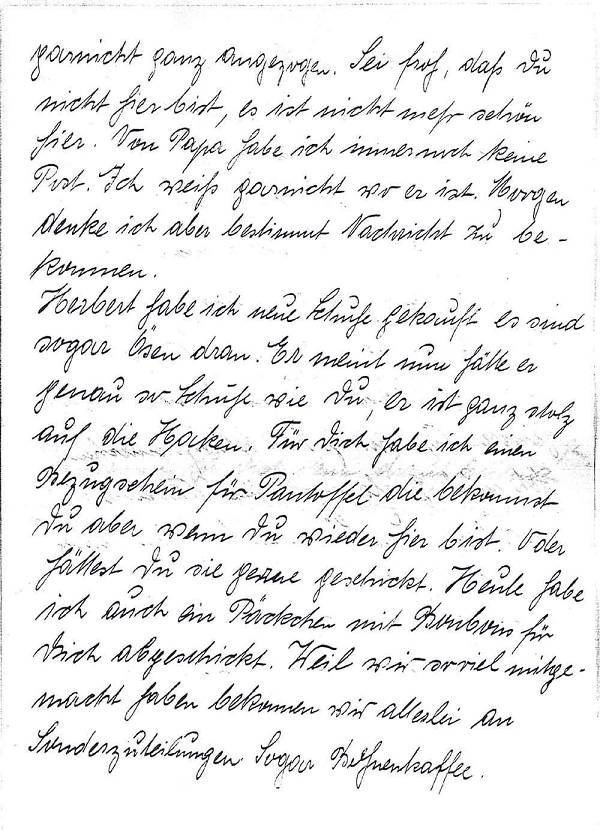 garnicht ganz angezogen. Sei froh, daß Du
nicht hier bist, es ist nicht mehr schön
hier. Von Papa habe ich immer noch keine
Post. Ich weiß garnicht wo er ist. Morgen
denke ich aber bestimmt Nachricht zu be-
kommen.
Herbert habe ich neue Schuhe gekauft es sind
sogar Ösen dran. Er meint nun hätte er
genau so Schuhe wie Du, er ist ganz stolz
auf die Haken. Für Dich habe ich einen
Bezugschein für Pantoffel die bekommst
Du aber wenn Du wieder hier bist. Oder
hättest Du sie gerne geschickt. Heute habe
ich auch ein Päckchen mit Bonbons für
Dich abgeschickt. Weil wir soviel mitge-
macht haben bekommen wir allerlei an
Sonderzuteilungen. Sogar Bohnenkaffee.